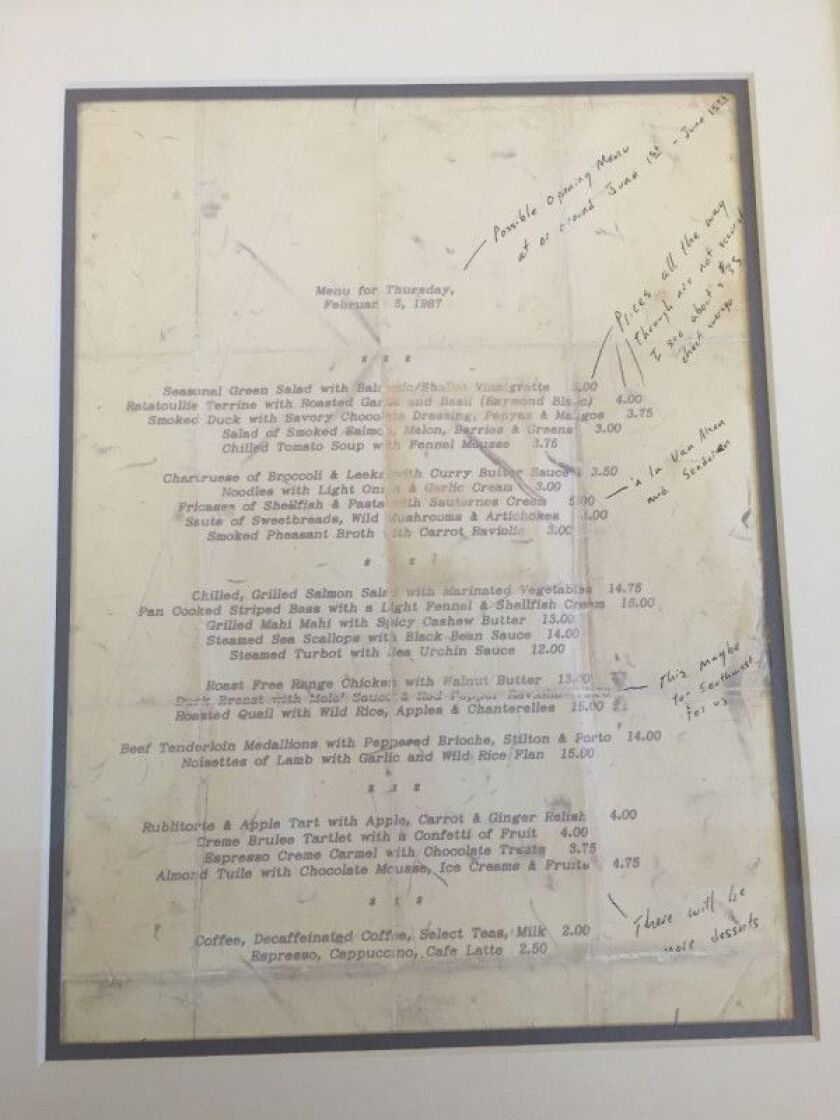 Possible Opening Menu
at or around June 1st - June 15th
Menu for Thursday,
Februar 5, 1987
* * *
Prices all the way
through are not
I see about a $38
check average
Seasonal Green Salad with Balsamic/Shallot Vinaigrette 3.00
Ratatouille Terrine with Roasted Garlic and Basil (Raymond Blanc) 4.00
Smoked Duck with Savory Chocolate Dressing, Papyas & Mangos 3.75
Salad of Smoked Salmon, Melon, Berries & Greens 3.00
Chilled Tomato Soup with Fennel Mousse 3.75
Chartruese of Broccoli & Leeks with Curry Butter Sauce 3.50
Noodles with Light Onion & Garlic Cream 3.00
Fricasee of Shellfish & Pasta with Sauternes Cream 5.00
a la Van Aken
and
Saute of Sweetbreads, Wild Mushrooms & Artichokes .00
Smoked Pheasant Broth with Carrot Raviolis 3.00
* *
Chilled, Grilled Salmon Salad with Marinated Vegetables 14.75
Pan Cooked Striped Bass with a Light Fennel & Shellfish Cream 15.00
Grilled Mahi Mahi with Spicy Cashew Butter 13.00
Steamed Sea Scallops with Black Bean Sauce 14.00
Steamed Turbot with Sea Urchin Sauce 12.00
Roast Free Range Chicken with Walnut Butter 13.00
Duck Breast with Mole' Sauce & Red Pepper Raviolis
This maybe
too Southwest
for us
Roasted Quail with Wild Rice, Apples & Chanterelles 15.00
Beef Tenderloin Medallions with Peppered Brioche, Stilton & Porto 14.00
Noisettes of Lamb with Garlic and Wild Rice Flan 15.00
* * *
Rublitorte & Apple Tart with Apple, Carrot & Ginger Relish 4.00
Creme Brulee Tartlet with a Confetti of Fruit 4.00
Espresso Creme Carmel with Chocolate Treats 3.75
Almond Tuile with Chocolate Mousse, Ice Creams & Fruits 4.75
* * *
There will be
more desserts
Coffee, Decaffeinated Coffee, Select Teas, Milk 2.00
Espresso, Cappuccino, Cafe Latte 2.50